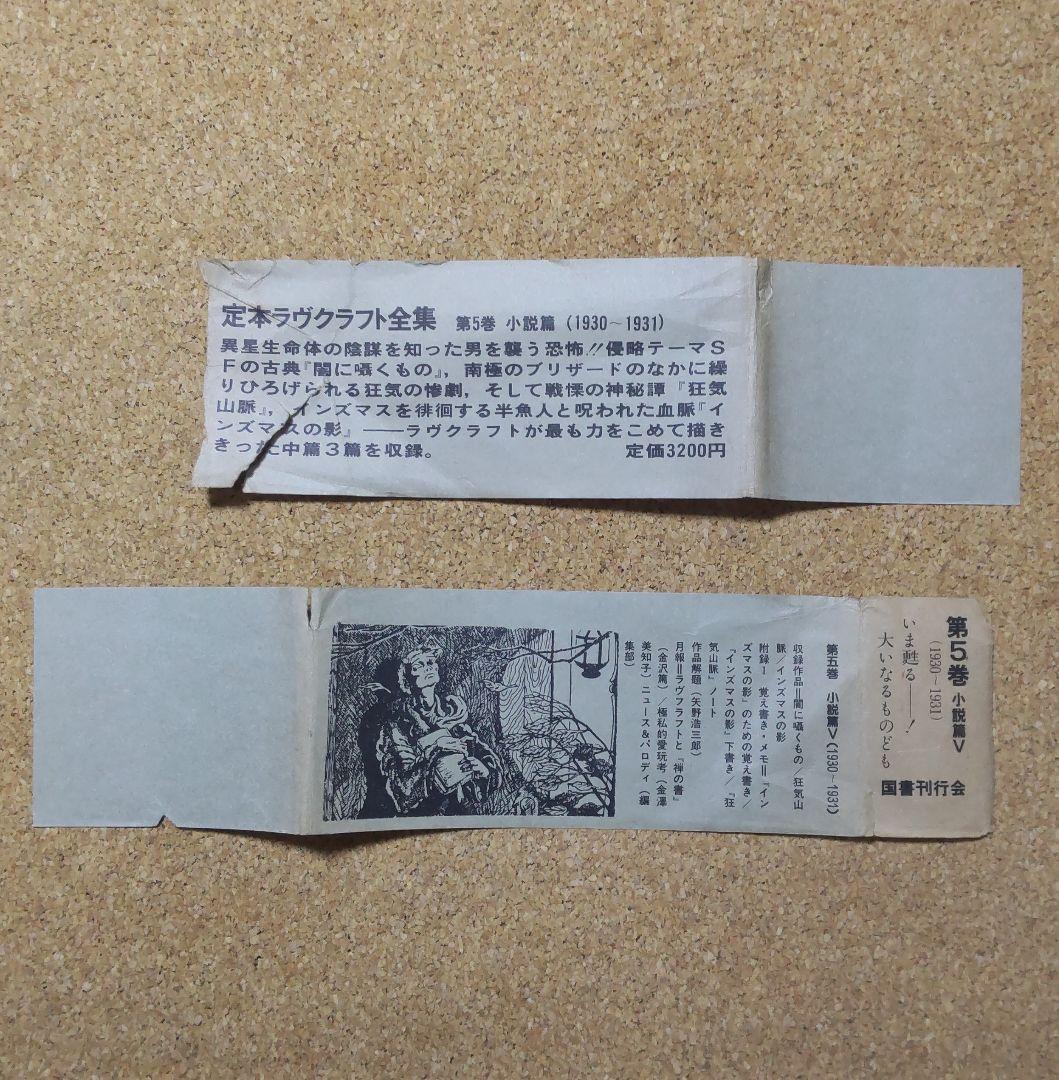 定本ラヴクラフト全集 第5巻 小説篇 (1930～1931)
異星生命体の陰謀を知った男を襲う恐怖!!侵略テーマS
Fの古典『闇に囁くもの』，南極のブリザードのなかに繰
りひろげられる狂気の惨劇，そして戦慄の神秘譚『狂気
山脈』，インズマスを徘徊する半魚人と呪われた血脈『イ
ンズマスの影』――ラヴクラフトが最も力をこめて描き
きった中篇3篇を収録。 定価3200円
第5巻 小説篇V
(1930～1931)
いま甦る――!
大いなるものども
国書刊行会
第五巻 小説篇V(1930～1931)
収録作品＝闇に囁くもの/狂気山
脈/インズマスの影
附録I 覚え書き・メモ＝『イン
ズマスの影』のための覚え書き/
『インズマスの影』下書き/『狂
気山脈』ノート
作品解題(矢野浩三郎)
月報＝ラヴクラフトと『禅の書』
(金沢篇) 極私的愛玩考(金澤
美知子)ニュース&パロディ(編
集部)